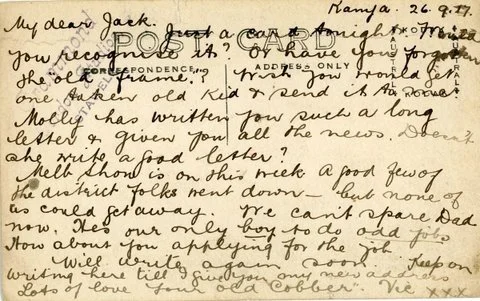 Kamja. 26.9.17.
My dear Jack. Just a card tonight. Would
you recognise it? Or have you forgotten
POST CARD
the old frame. Wish you would get
CORRESPONDENCE
ADDRESS ONLY
one taken old Kid & send it to
Molly has written you such a long
letter & given you all the news. Doesn't
she write a good letter?
Melb Show is on this week a good few of
the district folks went down — but none of
us could get away. We can't spare Dad
now. Hes our only boy to do odd jobs
How about you applying for the job
Will write again soon. Keep on
writing here till I give you my new address
Lots of love Your old Cobber Vic xxx